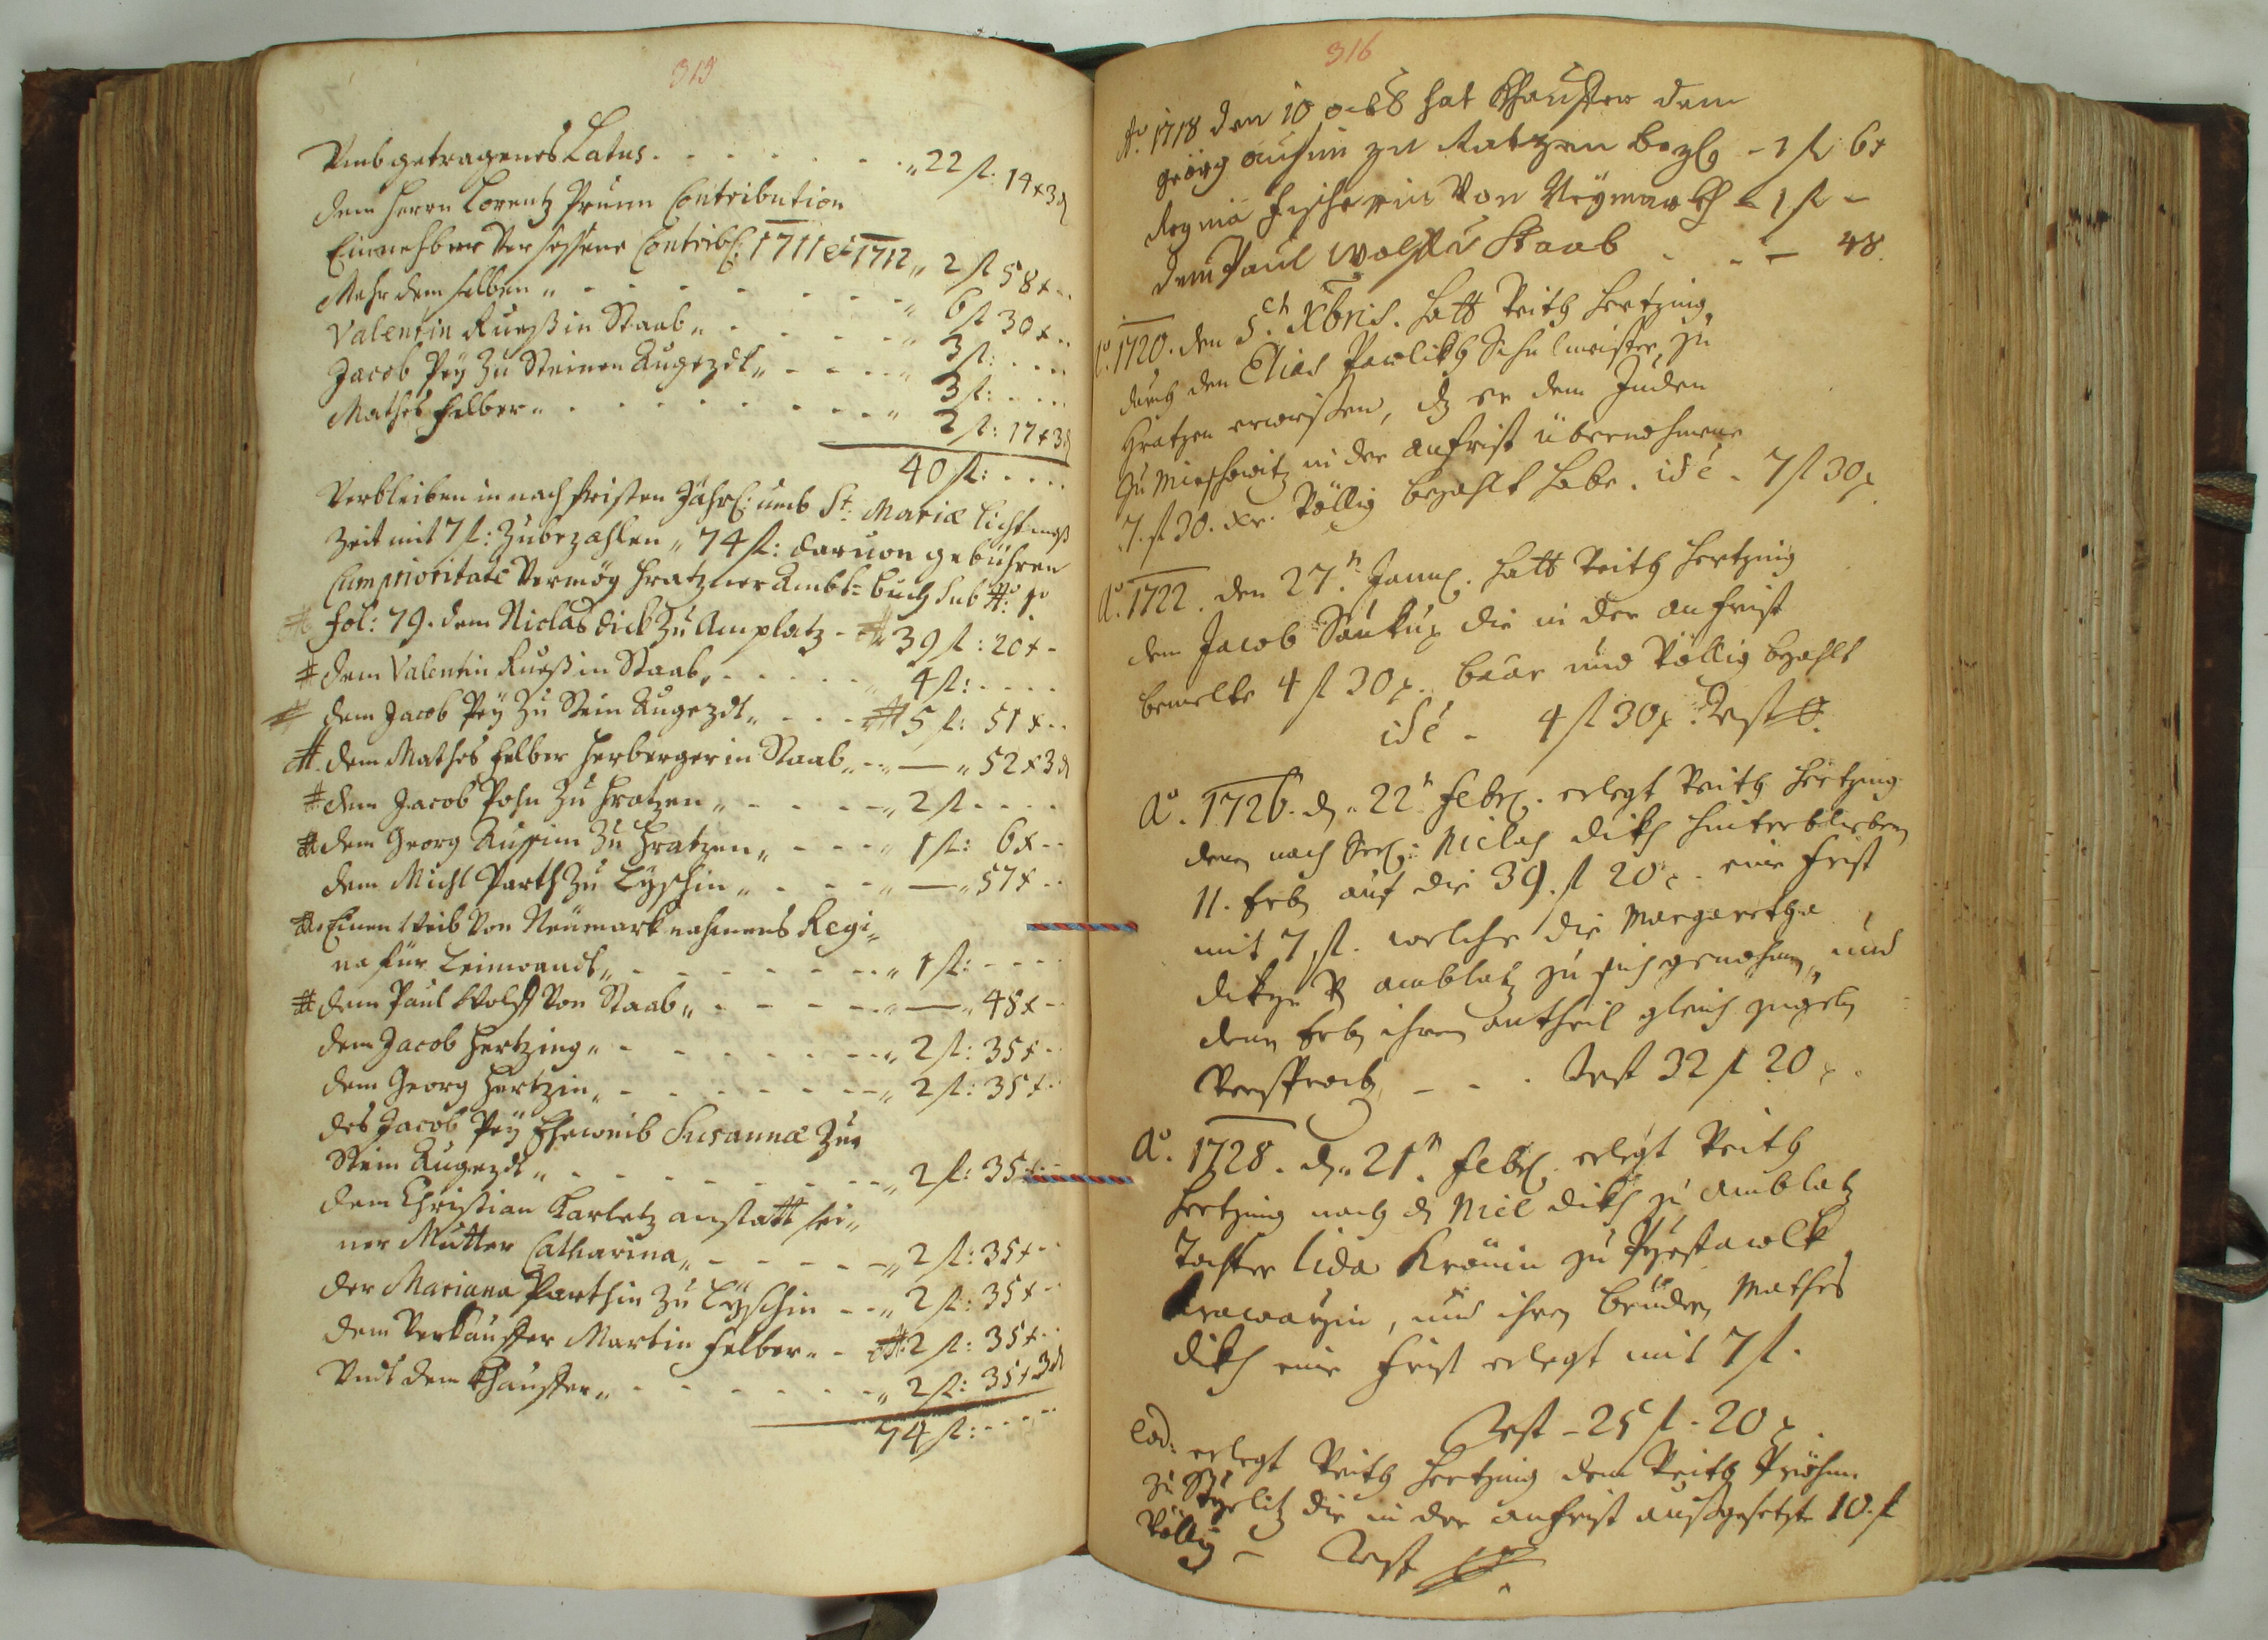 315
Umbgetragenes Latus . . . . . . . . „ 22 fl: 14 x 3 d
dem Herrn Lorentz Prunn Contribution
Einnehber versessene Contrib: 1711 et 1712 „ 2 fl 58 x ..
Mehr dem selben „ - - - - - - - „ 6 fl 30 x ..
Valentin Rueß in Staab „ - - - - - „ 3 fl: . . . .
Jacob Pey Zu Steinen Augezdt „ - - - - „ 3 fl: . . . .
Mathes Felber „ . . . . . . . . „ 2 fl: 17 x 3 d
40 fl: . . . .
Verbleiben in nach fristen Jährl: umb St: Mariæ Lichtmeß
Zeit mit 7 fl: Zubezahlen „ 74 fl: daruon gebühren
Cum prioritate Vermög Hratzner Ambts-buch sub #: 1º
# Fol: 79. dem Niclas Dick Zu Amplatz - # 39 fl: 20 x -
# dem Valentin Rueß in Staab „ - - - - - „ 4 fl: . . . .
# dem Jacob Pey Zu Stein Augezdt „ - - - # 5 fl: 51 x ..
# dem Mathes Felber Herberger in Staab „ - „ — „ 52 x 3 d
# dem Jacob Pohn Zu Hratzen „ - - - - „ 2 fl . . . .
# dem Georg Aussim Zu Hratzen „ - - - „ 1 fl: 6 x ..
dem Michl Parth Zu Lyschin „ - - - „ — „ 57 x ..
# Einen Weib Von Neümark nahmens Regi„
na für Leinwandt „ - - - - - - - „ 1 fl: - - - -
# dem Paul Wolff Von Staab „ - - - - - „ — „ 48 x ..
dem Jacob Hertzing „ - - - - - - - „ 2 fl: 35 x ..
dem Georg Hertzin „ - - - - - - - „ 2 fl: 35 x ..
des Jacob Pey Eheweib Susannæ Zu
Stein Augezdt „ - - - - - - - - „ 2 fl: 35 x ..
dem Christian Karletz anstatt sei„
ner Mutter Catharina „ - - - - - „ 2 fl: 35 x ..
der Mariana Parthin Zu Lyschin - - „ 2 fl: 35 x ..
dem Verkauffer Martin Felber „ - # 2 fl: 35 x ..
Vndt dem Khauffer „ - - - - - - „ 2 fl: 35 x 3 d
74 fl: - - - -
316
Aº. 1718 den 10 octb8 hat Khauffer dem
georg ausim zu Ratzen bezl - 1 fl 6 x
Regina fischerin Von Neymarkh - 1 fl -
dem Paul Wolff Staab - - - 48.
Aº. 1720. den 5.ten Xbris. hatt Veith Hertzing
durch den Elias Pawlikh Schulmeister zu
Hratzen erwiesen, dz er dem Juden
Zu Mirschowitz in der anfrist übernohmene
7. fl 30. xr. Völlig bezahlt habe. id é - 7 fl 30 x
Aº. 1722. den 27.n Janu: hatt Veith Hertzing
dem Jacob Saukup die in der anfrist
bemelte 4 fl 30 x. baar und Völlig bezahlt
id é - 4 fl 30 x. Rest #.
Aº. 1726. d. 22n Febr: erlegt Veith Hertzing
denen nach Seel: Niclas Dikh hinterblieben
11. Erb auf die 39. fl 20 x. eine frist
mit 7 fl. welche die Margaretha
Dikhin Amblatz zu sich genohmen, und
denen Erb ihren antheil gleich zugeb
Versproch - - - Rest 32 fl 20 x.
Aº. 1728. d. 21n Febr: erlegt Veith
Hertzing nach d Nicl Dikh zu Amblatz
Tochter Lida Kronin zu
, und ihren Bruder Mathes
Dikh eine frist erlegt mit 7 fl.
Rest - 25 fl - 20 x.
eod: erlegt Veith Hertzing dem Veith
zu die in der anfrist außgesetzte 10. fl
Völlig - Rest #.